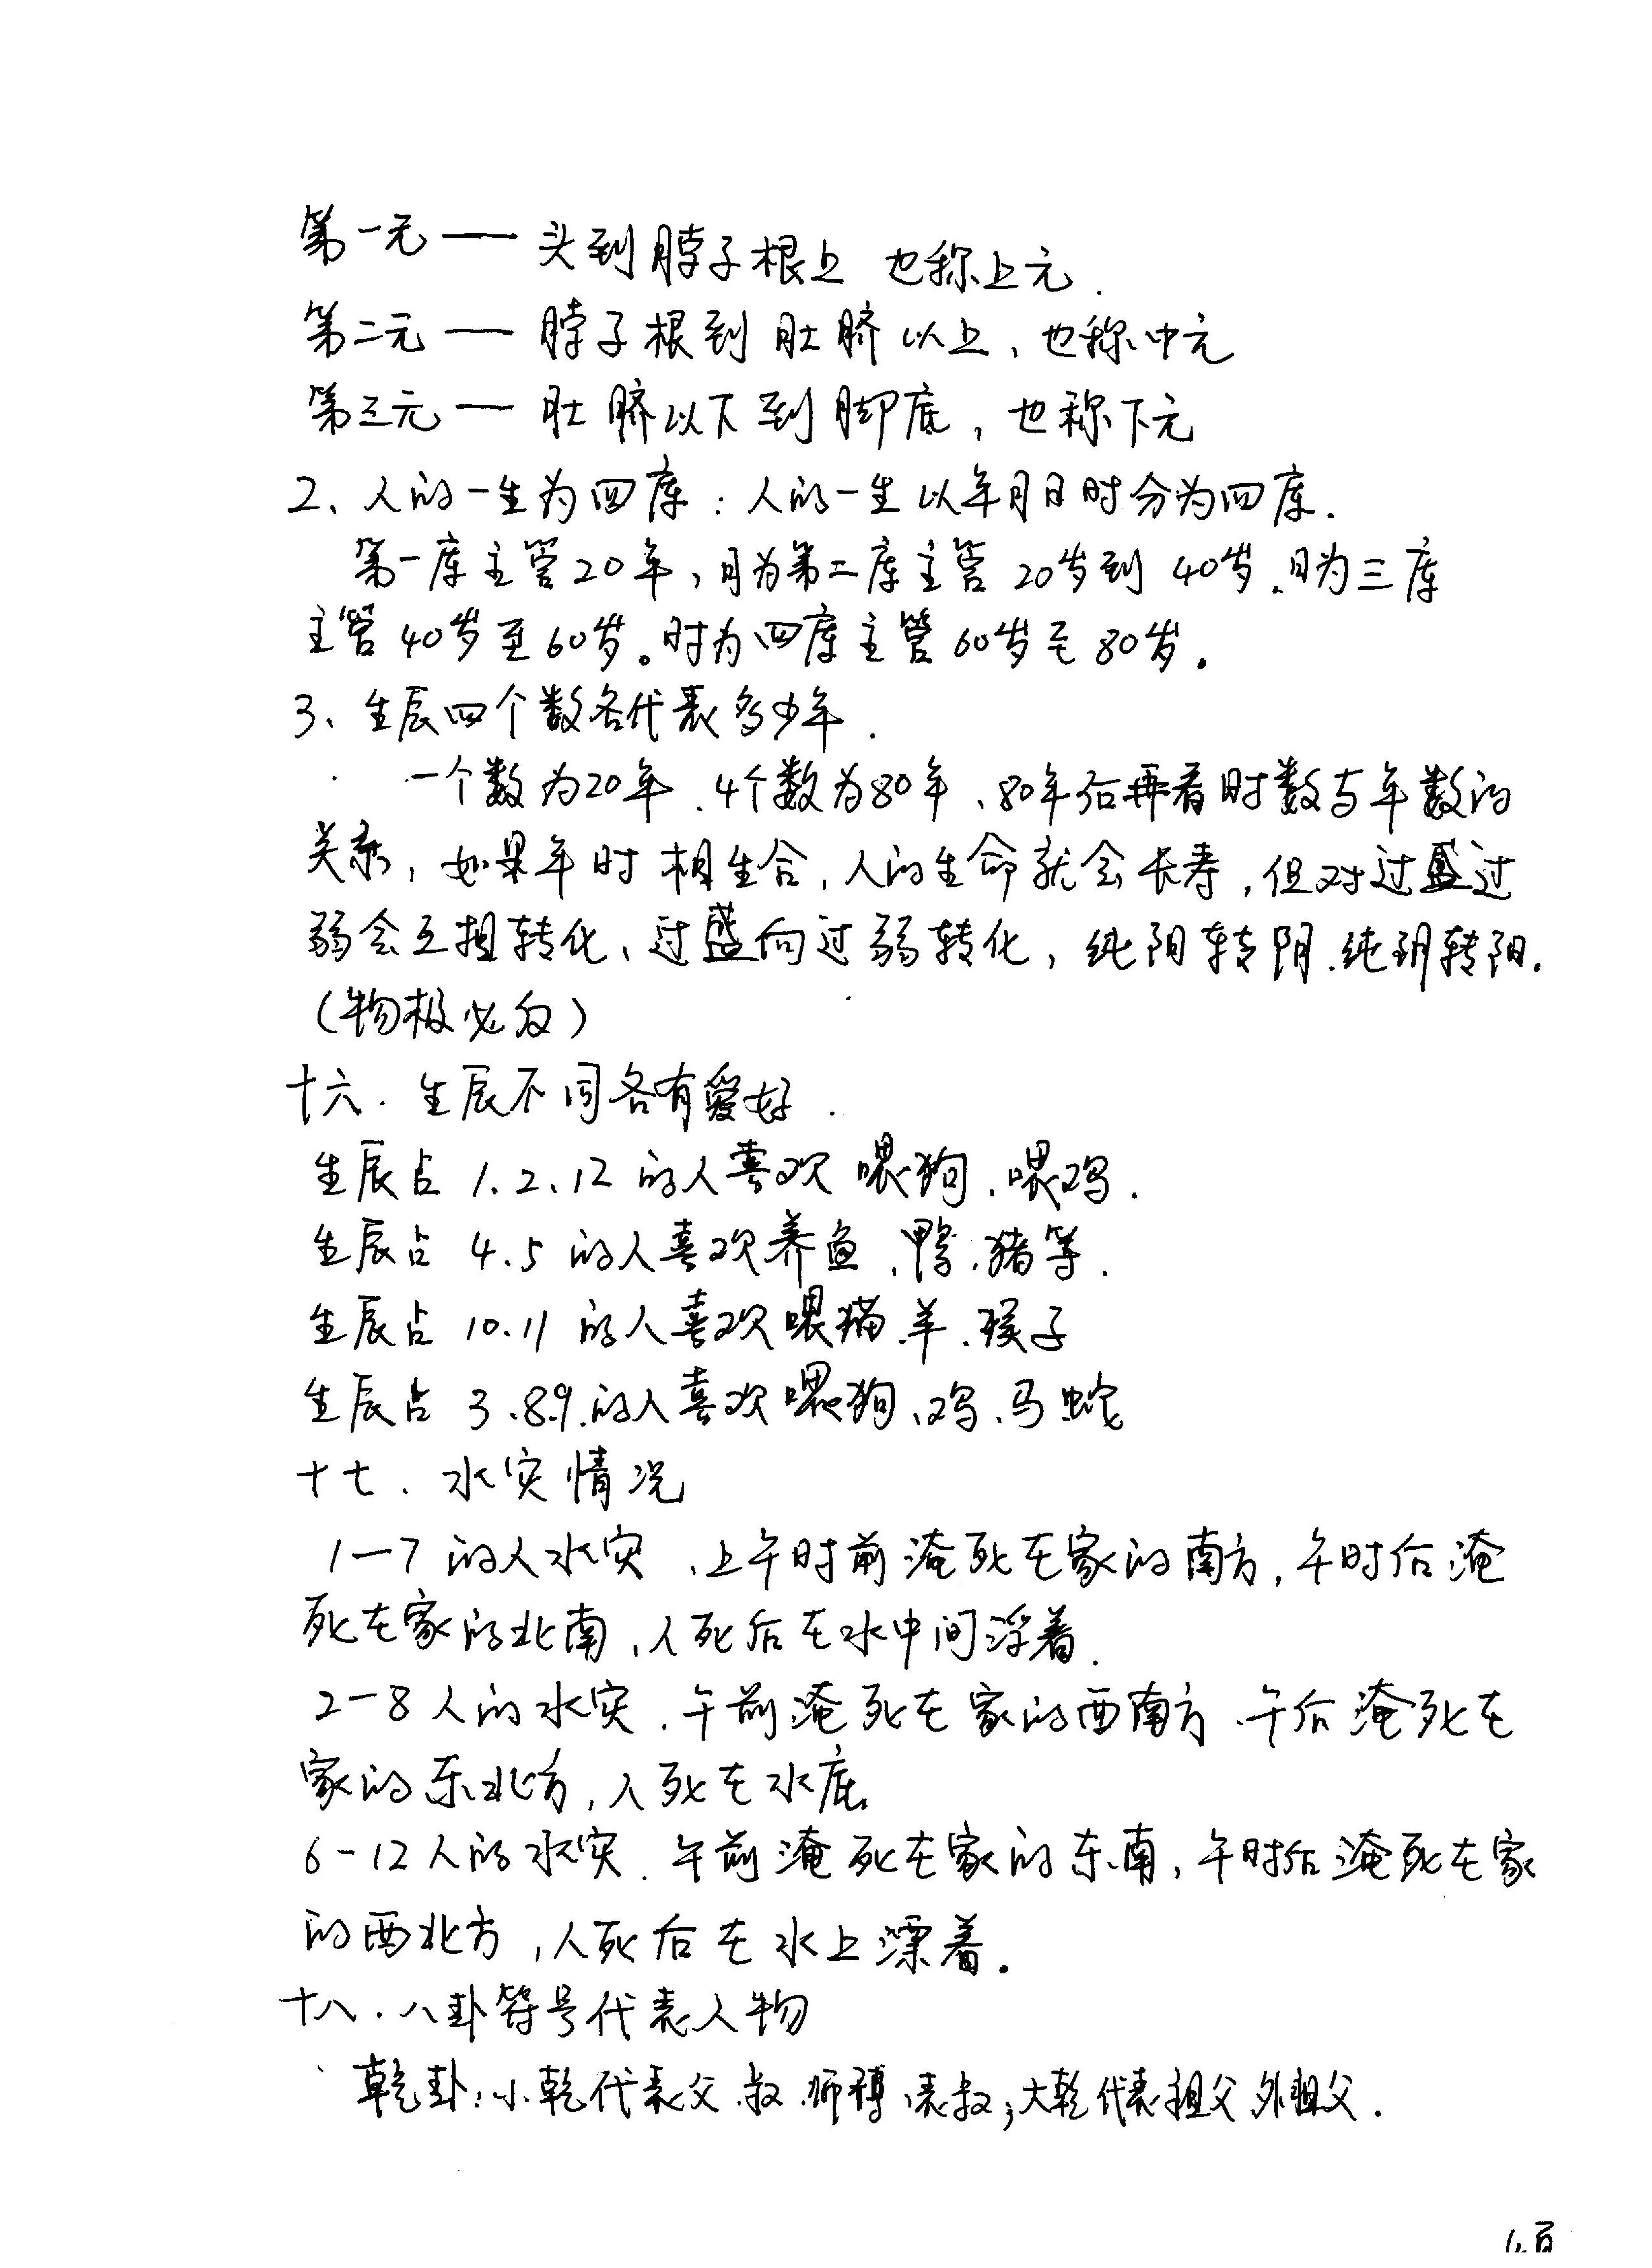 第一元 — 头到脖子根上 也称上元.
第二元 — 脖子根到肚脐以上、也称中元
第三元 — 肚脐以下到脚底，也称下元
2、人的一生为四库：人的一生以年月日时分为四库.
第一库主管20年，月为第二库主管20岁到40岁.日为三库
主管40岁至60岁。时为四库主管60岁至80岁.
3、生辰四个数各代表多少年.
一个数为20年.4个数为80年、80年后再看时数与年数的
关系，如果年时相生合，人的生命就会长寿，但对过盛过
弱会互相转化、过盛向过弱转化，纯阳转阴.纯阴转阳.
（物极必反）
十六.生辰不同各有爱好.
生辰占1.2.12的人喜欢喂狗.喂鸡.
生辰占4.5的人喜欢养鱼.鸭.猪等.
生辰占10.11的人喜欢喂猫.羊.猴子
生辰占3.8.9.的人喜欢喂狗、鸡、马蛇
十七.水灾情况
1—7的人水灾、上午时前淹死在家的南方，午时后淹
死在家的北南，人死后在水中间浮着.
2-8人的水灾.午前淹死在家的西南方.午后淹死在
家的东北方，人死在水底.
6-12人的水灾.午前淹死在家的东南，午时后淹死在家
的西北方，人死后在水上漂着.
十八.八卦符号代表人物
乾卦：小乾代表父.叔.师傅、表叔；大乾代表祖父.外祖父.